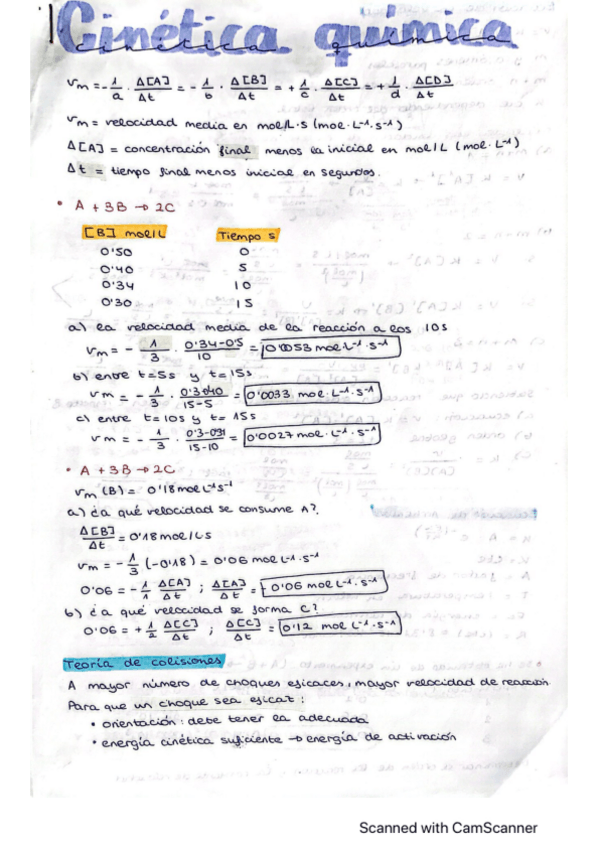 Cinética química
Vm = - 1/a · Δ[A]/Δt = - 1/b · Δ[B]/Δt = + 1/c · Δ[C]/Δt = + 1/d · Δ[D]/Δt
Vm = velocidad media en mol/L·s (mol·L⁻¹·s⁻¹)
Δ[A] = concentración final menos la inicial en mol/L (mol·L⁻¹)
Δt = tiempo final menos inicial en segundos.
• A + 3B → 2C
[B] mol/L Tiempo s
0'50 0
0'40 5
0'34 10
0'30 15
a) la velocidad media de la reacción a los 10s
Vm = - 1/3 · 0'34-0'5/10 = 0'0053 mol·L⁻¹·s⁻¹
b) entre t=5s y t=15s
Vm = - 1/3 · 0'3-0'40/15-5 = 0'0033 mol·L⁻¹·s⁻¹
c) entre t=10s y t= 15s
Vm = - 1/3 · 0'3-0'34/15-10 = 0'0027 mol·L⁻¹·s⁻¹
• A + 3B → 2C
Vm (B) = 0'18 mol L⁻¹s⁻¹
a) ¿a qué velocidad se consume A?
Δ[B]/Δt = 0'18 mol/L s
Vm = - 1/3 (-0'18) = 0'06 mol·L⁻¹·s⁻¹
0'06 = - 1/1 Δ[A]/Δt ; Δ[A]/Δt = -0'06 mol L⁻¹·s⁻¹
b) ¿a qué velocidad se forma C?
0'06 = + 1/2 Δ[C]/Δt ; Δ[C]/Δt = 0'12 mol L⁻¹·s⁻¹
Teoría de colisiones
A mayor número de choques eficaces, mayor velocidad de reacción
Para que un choque sea eficaz:
• orientación: debe tener la adecuada
• energía cinética suficiente → energía de activación
Scanned with CamScanner